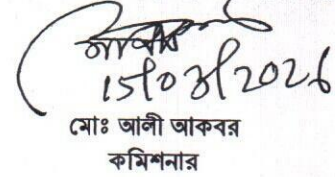 15/03/2026
মোঃ আলী আকবর
কমিশনার